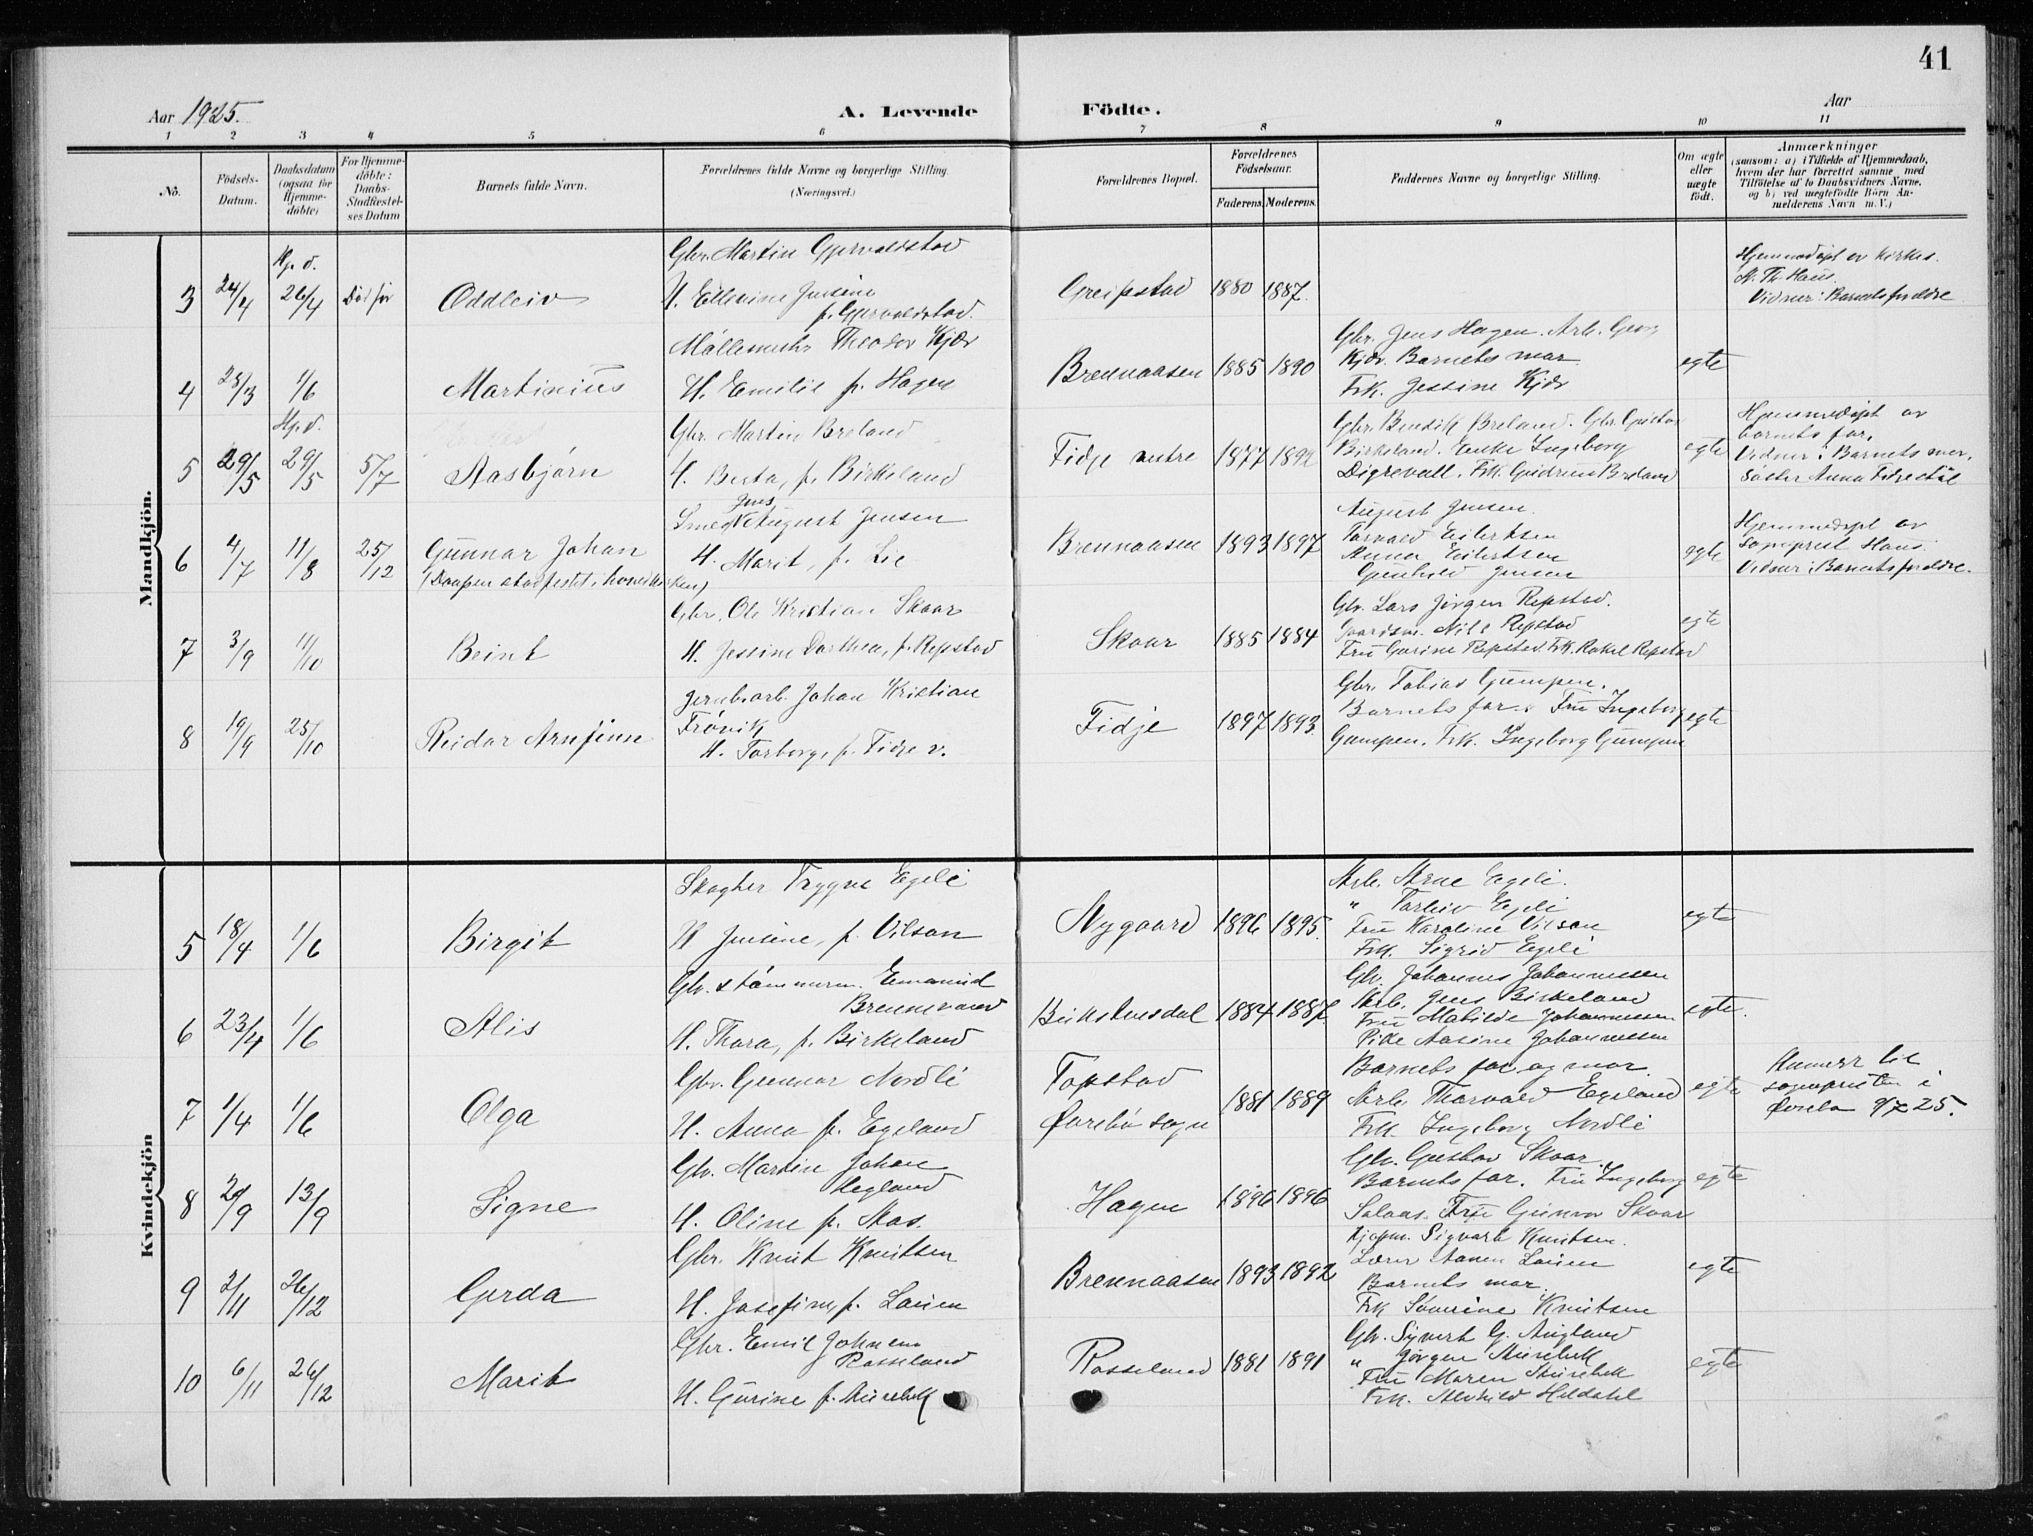 41
Aar 1925.
A. Levende Födte.
Aar
1 2 3 4 5 6 7 8 9 10 11
No.
Födsels-Datum.
Daabsdatum (ogsaa for Hjemme-döbte)
For Hjemme-döbte: Daabs-Stadfæstel-ses Datum
Barnets fulde Navn.
Forældrenes fulde Navne og borgerlige Stilling. (Næringsvei.)
Forældrenes Bopæl.
Forældrenes Födselsaar.
Faderens. Moderens.
Faddernes Navne og borgerlige Stilling.
Om ægte eller uægte födt.
Anmærkninger
(saasom: a) i Tilfælde af Hjemmedaab, hvem der har forrettet samme, med Tilföielse af to Daabsvidners Navne, og b) ved uegtefödte Börn An-melderens Navn m. V.)
Mandkjön.
3 24/4 Hj. d. 26/4 Död för Oddleiv
Gbr. Martin Gjervoldstad
H. Ellevine Jensine f. Gjervoldstad.
Greipstad 1880 1887.
Hjemmedöpt av kirkes. N. Th. Haus. Vidner: Barnets foreldre
4 25/3 1/6 Martinius
Möllemester Theodor Kjær
H. Emilie f. Hagen
Brennaasen 1885 1890
Gbr. Jens Hagen. Arb. Georg
Kjær. Barnets mor.
Frk. Jessine Kjær
egte
5 29/5 Hj. d. 29/5 5/7 Aasbjørn
Gbr. Martin Breland
H. Berta, f. Birkeland
Fidje vestre 1877 1892
Gbr. Bendik Breland. Gbr. Gustav
Birkeland. Enke Ingeborg
Digrevall. Frk. Gudrun Breland
egte
Hjemmedöpt av barnets far. Vidner: Barnets mor, søster Anna
6 4/7 11/8 25/12 Gunnar Johan
(Daapen stadfestet i hovedkirken)
Smed Jens August Jensen
H. Marit, f. Lie
Brennaasen 1893 1897
August Jensen.
Torvald Eilertsen
Anna Eilertsen
Gunhild Jensen
egte
Hjemmedöpt av sogneprest Haus. Vidner: Barnets foreldre.
7 3/9 11/10 Beint
Gbr. Ole Kristian Skaar
H. Jessine Dorthea, f. Repstad
Skaar 1885 1884
Gbr. Lars Jörgen Repstad.
Gaardsm. Nils Repstad
Fru Gurine Repstad. Frk. Rakel Repstad
egte
8 19/9 25/10 Reidar Arnfinn
Jernb.arb. Johan Kristian
Frövik
H. Torborg, f. Fidje v.
Fidje 1897 1893.
Gbr. Tobias Gumpen.
Barnets far. Fru Ingeborg
Gumpen. Frk. Ingeborg Gumpen
egte
Kvindekjön
5 18/4 1/6 Birgit
Skogbet Trygve Egeli
H. Jensine, f. Vilson
Nygaard 1896 1895.
Arb. Arne Egeli.
" Torleiv Egeli
Fru Karoline Vilson
Frk. Sigrid Egeli
egte
6 23/4 1/6 Alis
Gbr. & tömmerm. Emanuel
Brennevand
H. Thora, f. Birkeland
1884 1887.
Gbr. Johannes Johannessen
Arb. Jens Birkeland
Fru Matilde Johannessen
Pike Aasine Johannessen
egte.
7 1/4 1/6 Olga
Gbr. Gunnar Nordli
H. Anna f. Egeland
Topstad
Övrebö sogn 1881 1889
Barnets far og mor.
Arb. Thorvald Egeland
Frk. Ingeborg Nordli
egte
til sognepresten i Övrebö 9/7 25.
8 20/9 13/9 Signe
Gbr. Martin Johan
Hegland
H. Oline f. Aas.
Hagen 1896 1896
Gbr. Gustav Skaar
Barnets far. Fru Ingeborg
Salaas. Fru Gunvor Skaar
egte
9 2/11 26/12 Gerda
Gbr. Knut Knutsen
H. Josefine, f. Lauen
Brennaasen 1893 1892
Kjøpm. Sigvart Knutsen.
Lærer Aanen Lauen
Barnets mor.
Frk Severine Knutsen
egte
10 6/11 26/12 Marit
Gbr. Emil Johnsen
Rosseland
H. Gurine f. Aurebek
Rosseland 1881 1891
Gbr. Syvert G. Augland
" Jørgen Aurebek
Fru Maren Aurebek
Frk. Alvhild Hildahl
egte